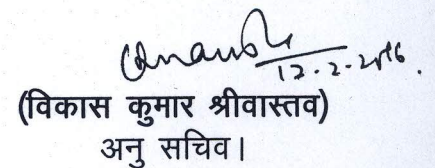 12.2.2016.
(विकास कुमार श्रीवास्तव)
अनु सचिव।